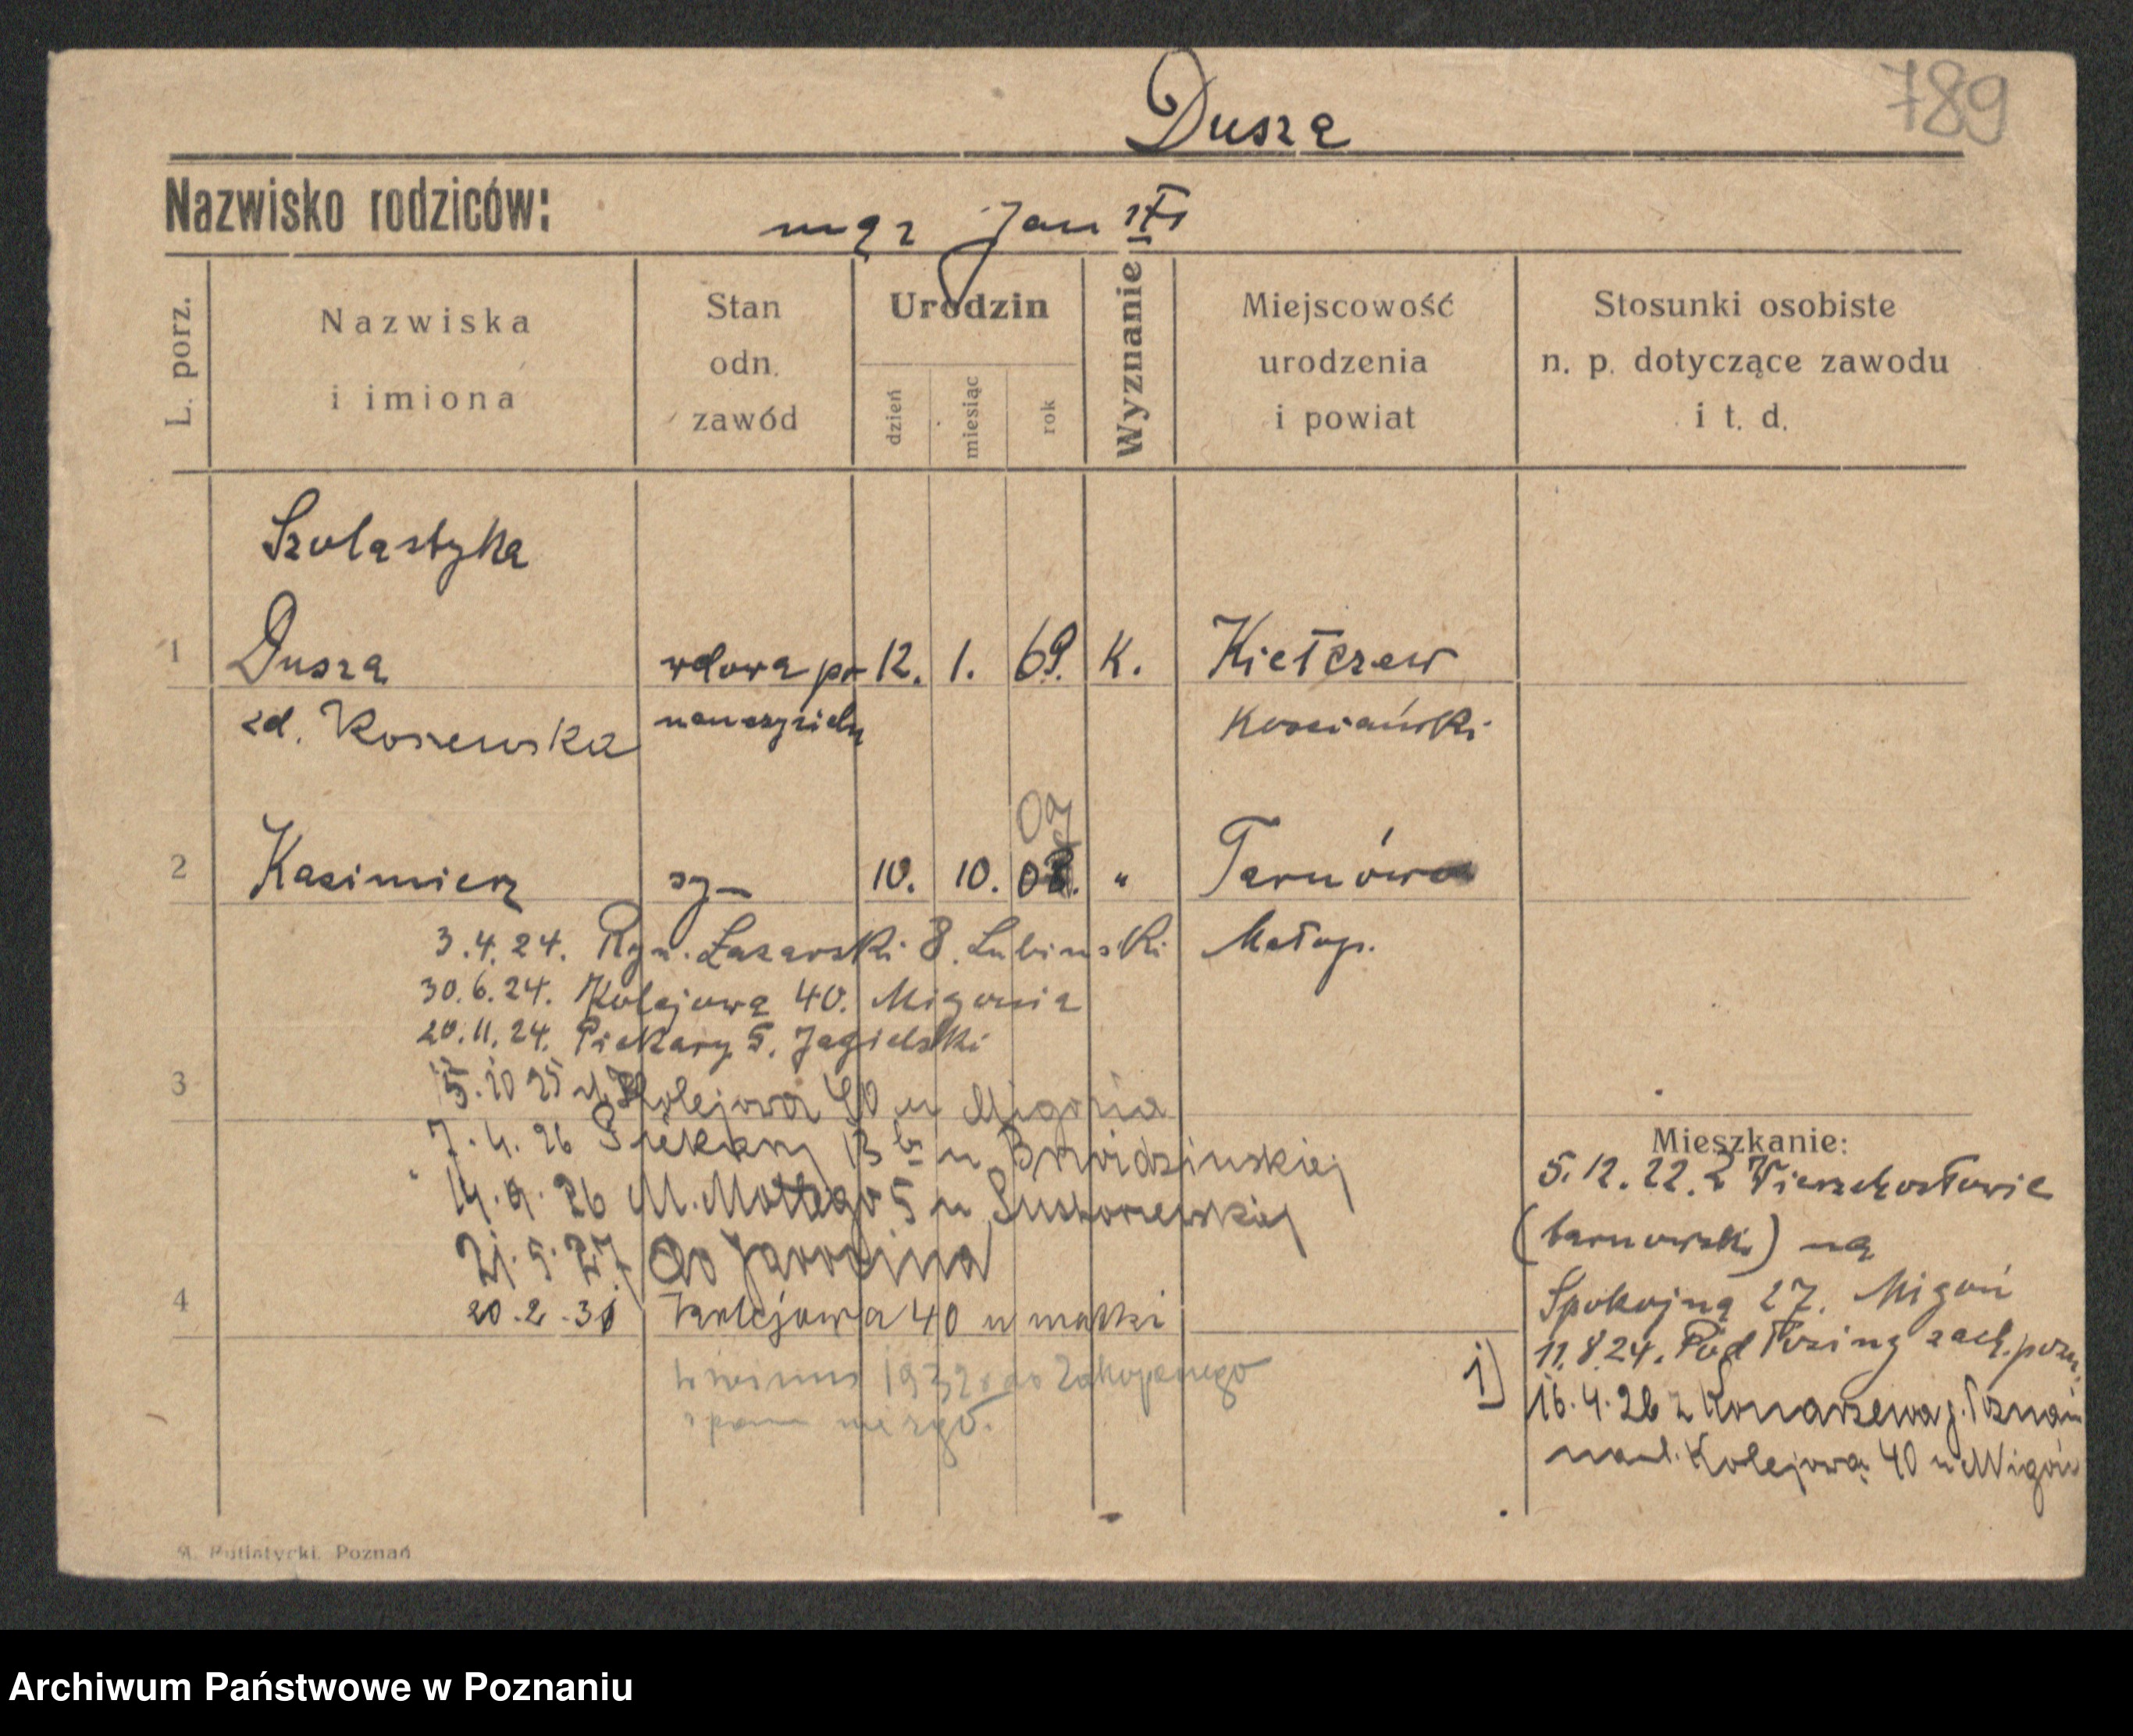 Dusza
789
Nazwisko rodziców:
mąż Jan
L. porz.
Nazwiska
i imiona
Stan
odn.
zawód
Urodzin
dzień
miesiąc
rok
Wyznanie
Miejscowość
urodzenia
i powiat
Stosunki osobiste
n. p. dotyczące zawodu
i t. d.
Szolastyka
1 Dusza wdowa po 12. 1. 69. K. Kiełczew
zd. Kosewska nauczycielu Kościański
09
2 Kazimierz syn 10. 10. 08. " Tarnów
3.4.24. Ryn. Łazarski 8. Lubinski Małop.
30.6.24. Kolejowa 40. Migonia
20.11.24. Piekary 5. Jagielski
3
5.10 25 Kolejowa 40 u Migonia
7.4.26 Piekary 13 u
14.9.26 M. Mottego 5 u
21.9.27 do Jarocina
4
20.2.31 Kolejowa 40 u matki
1932 do Zakopanego
Mieszkanie:
5.12.22. z Wierzchosławic
(tarnowski) na
Spokojną 27. Migoń
11.8.24. Pod zach. pozn.
1) 16.4.26 z Konarzewa p. Poznań
na ul. Kolejową 40 u Migoń
Poznań
Archiwum Państwowe w Poznaniu